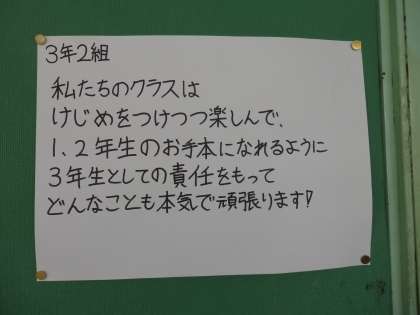 3年2組
私たちのクラスは
けじめをつけつつ楽しんで、
1、2年生のお手本になれるように
3年生としての責任をもって
どんなことも本気で頑張ります!